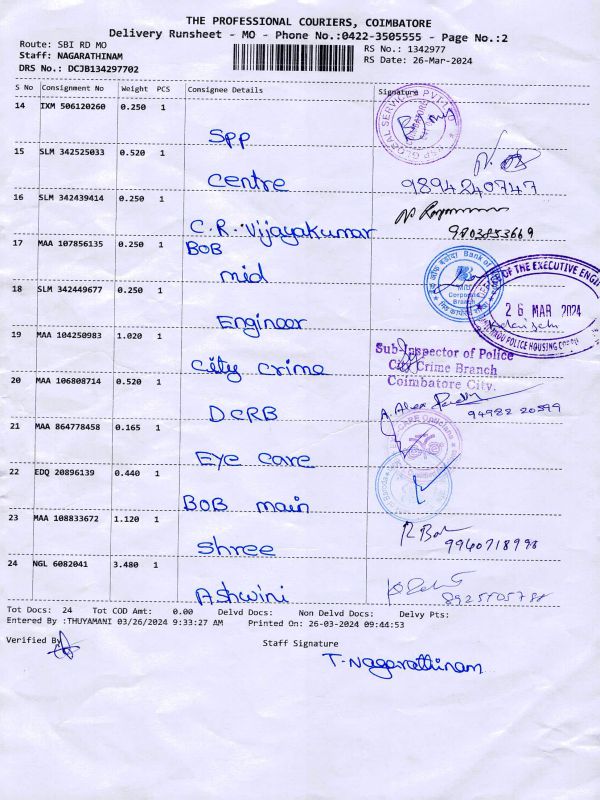 THE PROFESSIONAL COURIERS, COIMBATORE
Delivery Runsheet - MO - Phone No.:0422-3505555 - Page No.:2
Route: SBI RD MO
RS No.: 1342977
Staff: NAGARATHINAM
RS Date: 26-Mar-2024
DRS No.: DCJB134297702
S No Consignment No Weight PCS Consignee Details Signature
14 IXM 506120260 0.250 1
SPP
15 SLM 342525033 0.520 1
centre
9894240747
16 SLM 342439414 0.250 1
C.R. Vijayakumar
17 MAA 107856135 0.250 1 BOB
mid
18 SLM 342449677 0.250 1
26 MAR 2024
Engineer
19 MAA 104250983 1.020 1
Sub-Inspector of Police
City Crime Branch
Coimbatore City.
City crime
20 MAA 106808714 0.520 1
DCRB
94982 20599
21 MAA 864778458 0.165 1
Eye care
22 EDQ 20896139 0.440 1
BOB main
23 MAA 108833672 1.120 1
Shree
24 NGL 6082041 3.480 1
Ashwini
Tot Docs: 24 Tot COD Amt: 0.00 Delvd Docs: Non Delvd Docs: Delvy Pts:
Entered By :THUYAMANI 03/26/2024 9:33:27 AM Printed On: 26-03-2024 09:44:53
Verified By
Staff Signature
T. Nagarathinam